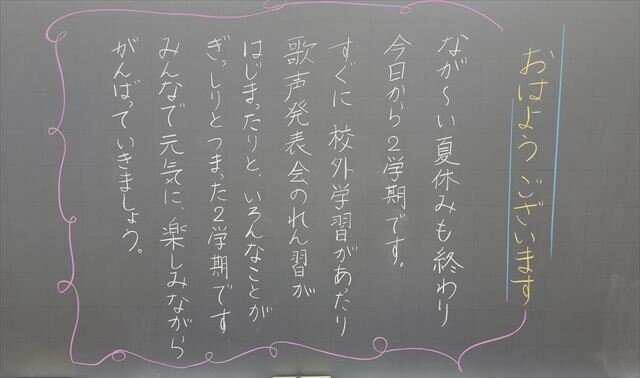 おはようございます
なが〜い夏休みも終わり
今日から2学期です。
すぐに校外学習があたり
歌声発表会のれん習が
はじまったりと、いろんなことが
ぎっしりとつまった2学期です。
みんなで元気に、楽しみながら
がんばっていきましょう。